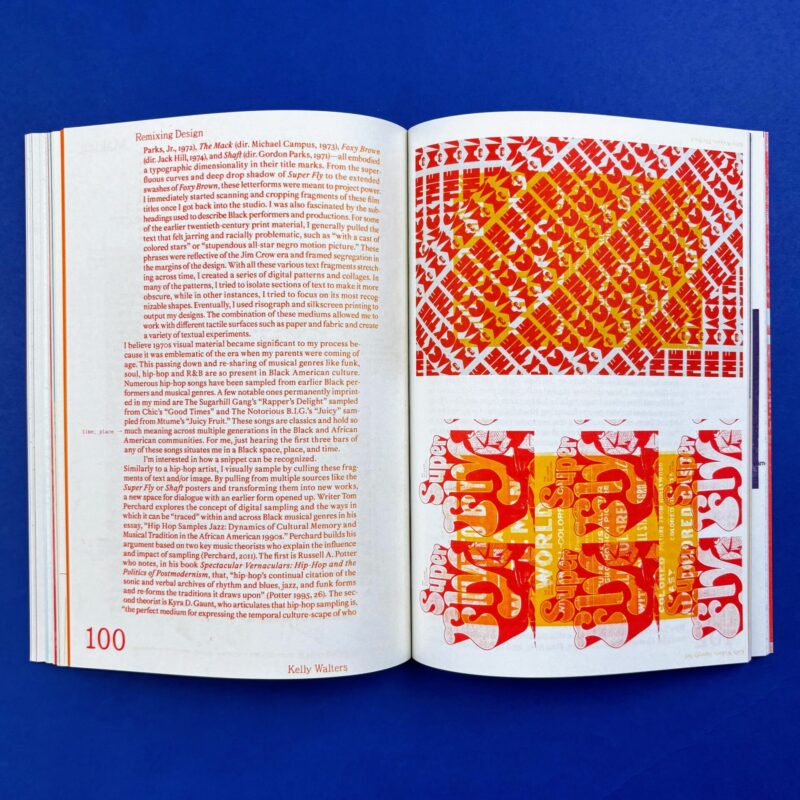 Remixing Design
Parks, Jr., 1972), The Mack (dir. Michael Campus, 1973), Foxy Brown
(dir. Jack Hill, 1974), and Shaft (dir. Gordon Parks, 1971)—all embodied
a typographic dimensionality in their title marks. From the super-
fluous curves and deep drop shadow of Super Fly to the extended
swashes of Foxy Brown, these letterforms were meant to project power.
I immediately started scanning and cropping fragments of these film
titles once I got back into the studio. I was also fascinated by the sub-
headings used to describe Black performers and productions. For some
of the earlier twentieth-century print material, I generally pulled the
text that felt jarring and racially problematic, such as “with a cast of
colored stars” or “stupendous all-star negro motion picture.” These
phrases were reflective of the Jim Crow era and framed segregation in
the margins of the design. With all these various text fragments stretch-
ing across time, I created a series of digital patterns and collages. In
many of the patterns, I tried to isolate sections of text to make it more
obscure, while in other instances, I tried to focus on its most recog-
nizable shapes. Eventually, I used risograph and silkscreen printing to
output my designs. The combination of these mediums allowed me to
work with different tactile surfaces such as paper and fabric and create
a variety of textual experiments.
I believe 1970s visual material became significant to my process be-
cause it was emblematic of the era when my parents were coming of
age. This passing down and re-sharing of musical genres like funk,
soul, hip-hop and R&B are so present in Black American culture.
Numerous hip-hop songs have been sampled from earlier Black per-
formers and musical genres. A few notable ones permanently imprint-
ed in my mind are The Sugarhill Gang’s “Rapper’s Delight” sampled
from Chic’s “Good Times” and The Notorious B.I.G.’s “Juicy” sam-
pled from Mtume’s “Juicy Fruit.” These songs are classics and hold so
time, place
much meaning across multiple generations in the Black and African
American communities. For me, just hearing the first three bars of
any of these songs situates me in a Black space, place, and time.
I’m interested in how a snippet can be recognized.
Similarly to a hip-hop artist, I visually sample by culling these frag-
ments of text and/or image. By pulling from multiple sources like the
Super Fly or Shaft posters and transforming them into new works,
a new space for dialogue with an earlier form opened up. Writer Tom
Perchard explores the concept of digital sampling and the ways in
which it can be “traced” within and across Black musical genres in his
essay, “Hip Hop Samples Jazz: Dynamics of Cultural Memory and
Musical Tradition in the African American 1990s.” Perchard builds his
argument based on two key music theorists who explain the influence
and impact of sampling (Perchard, 2011). The first is Russell A. Potter
who notes, in his book Spectacular Vernaculars: Hip-Hop and the
Politics of Postmodernism, that, “hip-hop’s continual citation of the
sonic and verbal archives of rhythm and blues, jazz, and funk forms
and re-forms the traditions it draws upon” (Potter 1995, 26). The sec-
ond theorist is Kyra D. Gaunt, who articulates that hip-hop sampling is,
“the perfect medium for expressing the temporal culture-scape of who
100
Kelly Walters
THE MACK
Super Fly
WORLD
COLORED
CAST